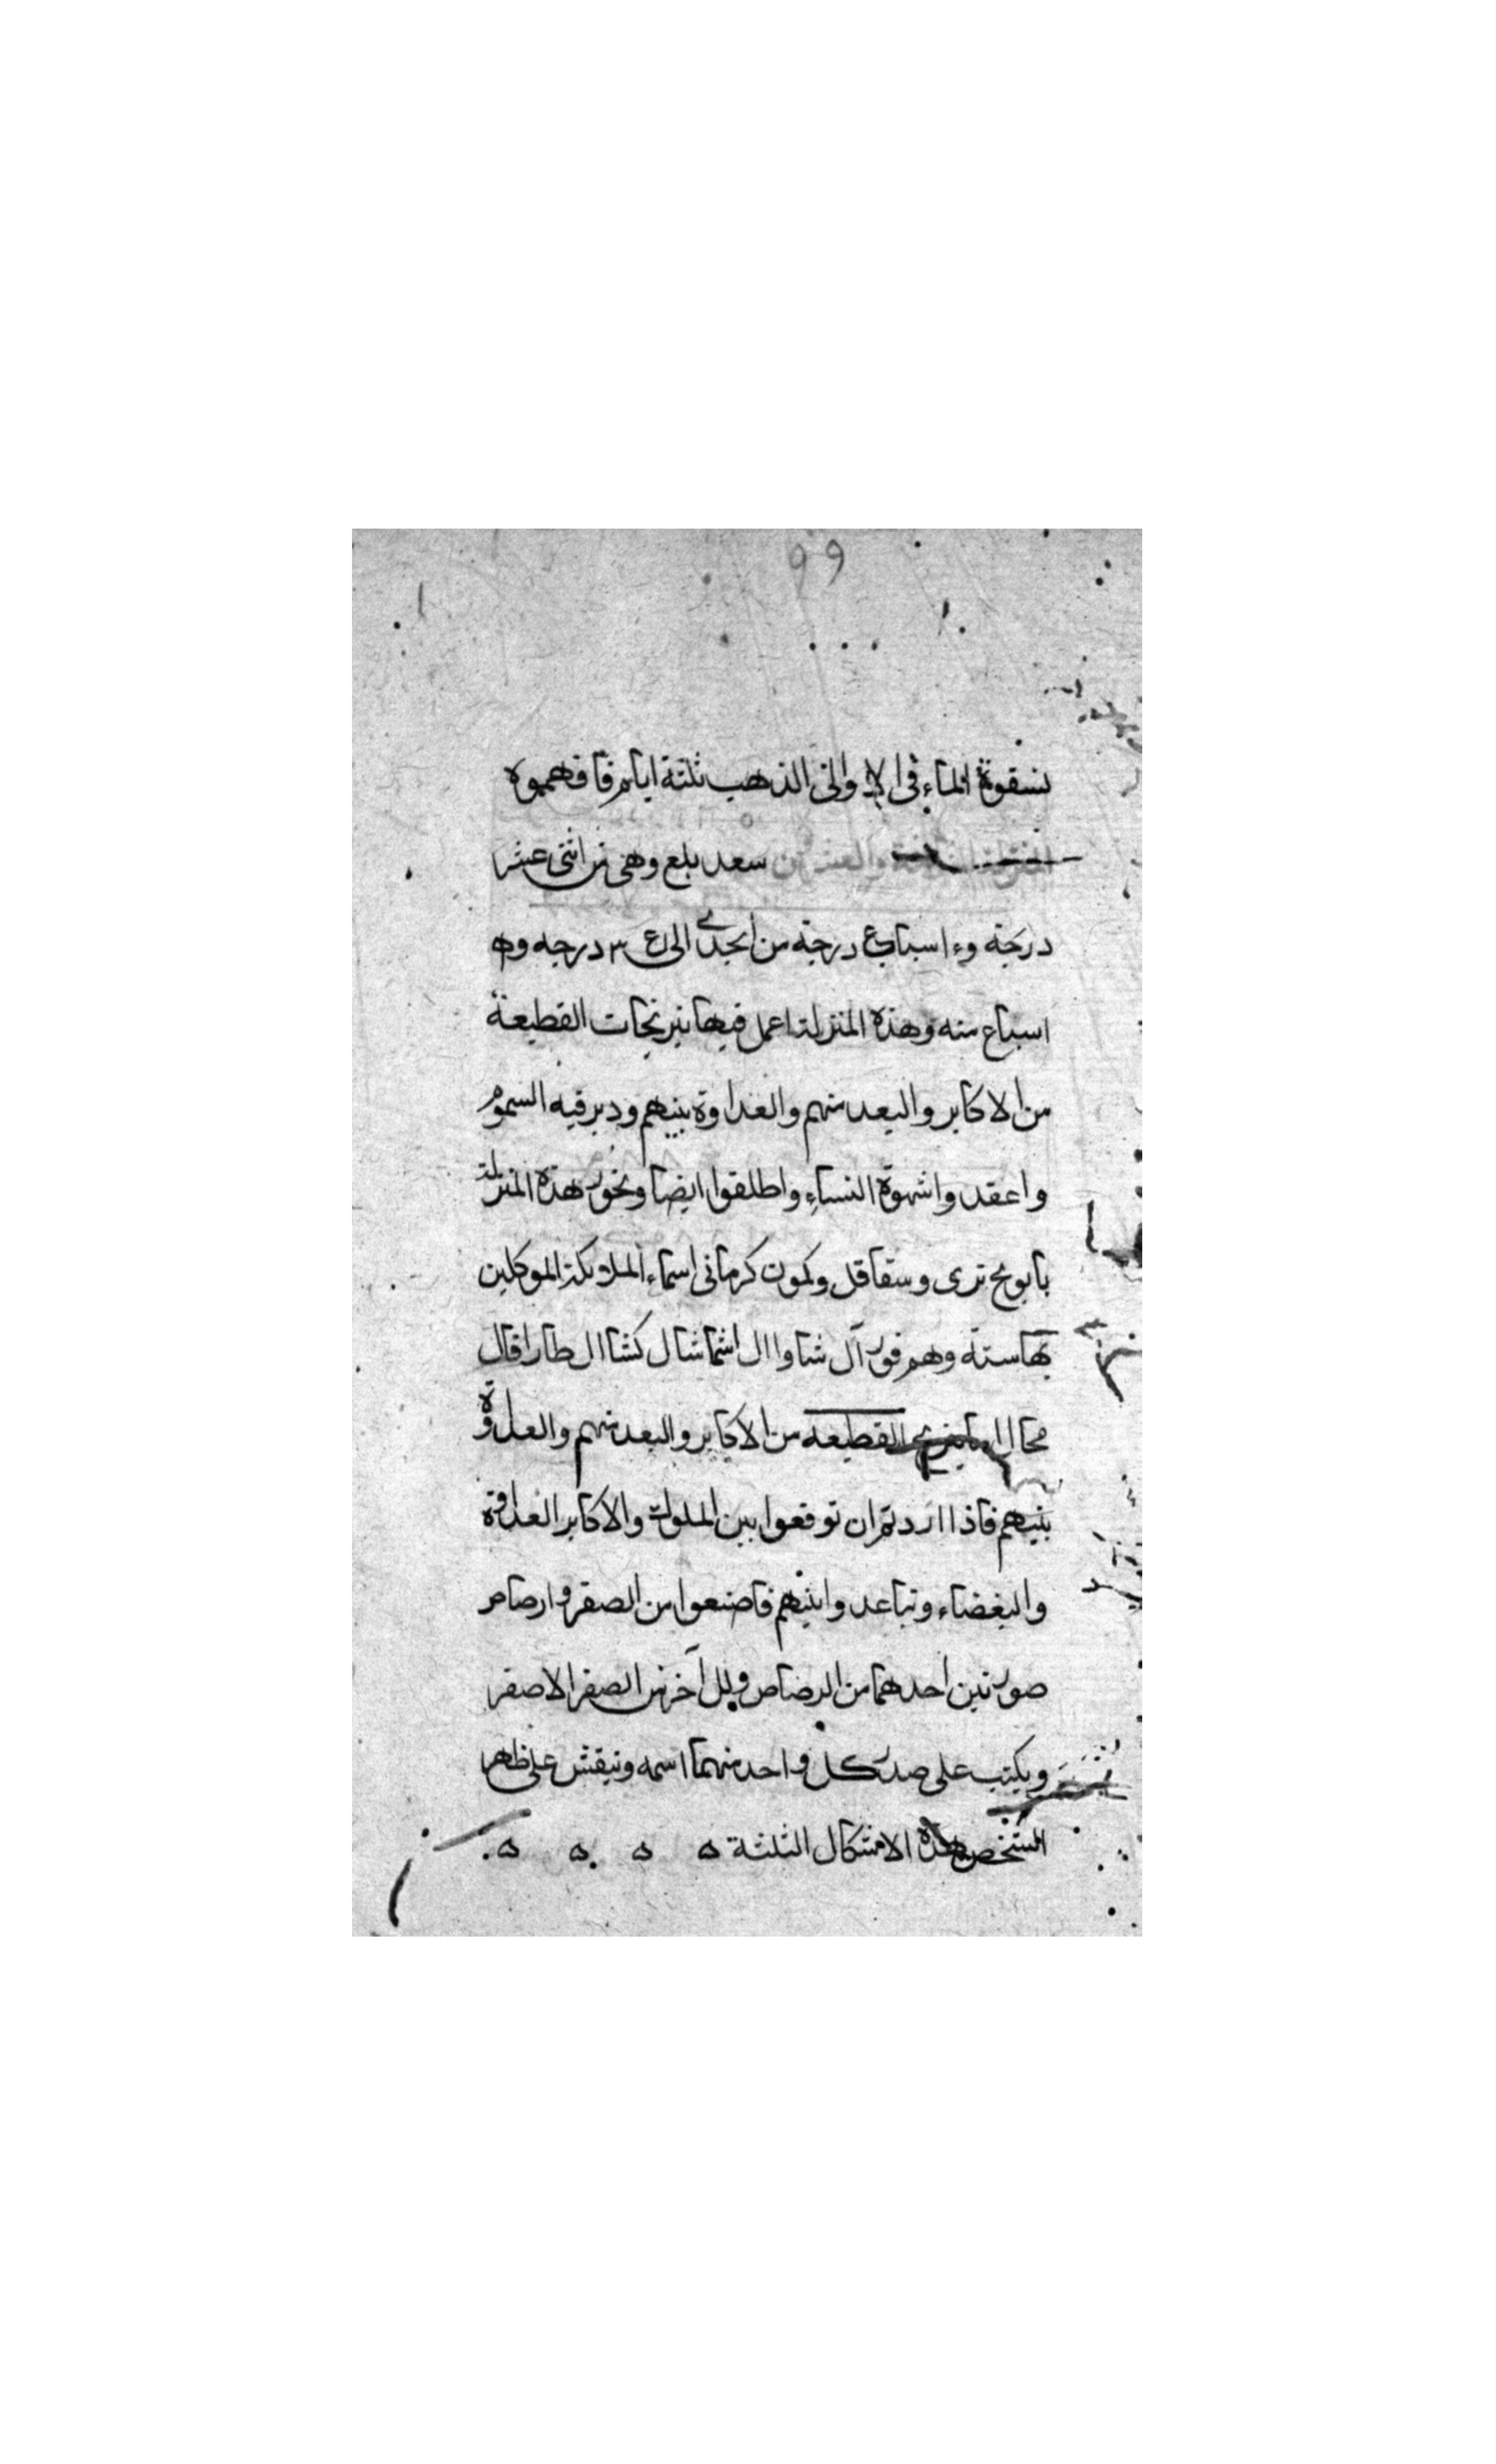 ٩٩
نسقوة الماء في الاواني الذهب ثلثة ايام فافهموه
المنزلة والعشرين سعد بلع وهي من اثنى عشر
درجة و٤ اسباع درجة من الجدي الى درجه وه
اسباع منه وهذه المنزلة اعمل فيها نيرنجات القطيعة
من الاكابر والبعد منهم والعداوة بينهم ودبر فيه السموم
واعقدوا شهوة النساء واطلقوا ايضا وبخور هذه المنزلة
بابونج ترى وسقاقل وكمون كرماني اسماء الملائكة الموكلين
بها ستة وهم فورآل شاواال اشماشال كشاال طارافال
محاال القطيعه من الاكابر والبعد منهم والعداوة
بينهم فاذا اردتم ان توقعوا بين الملوك والاكابر العداوة
والبغضاء وتباعدوا بينهم فاصنعوا من الصفر وارصاص
صورتين احدهما من الرصاص وللآخر من الصفر الاصفر
ويكتب على صدر كل واحد منهما اسمه وينقش على ظهر
الشخص هذه الاشكال الثلثة ۵ ۵ ۵ ۵